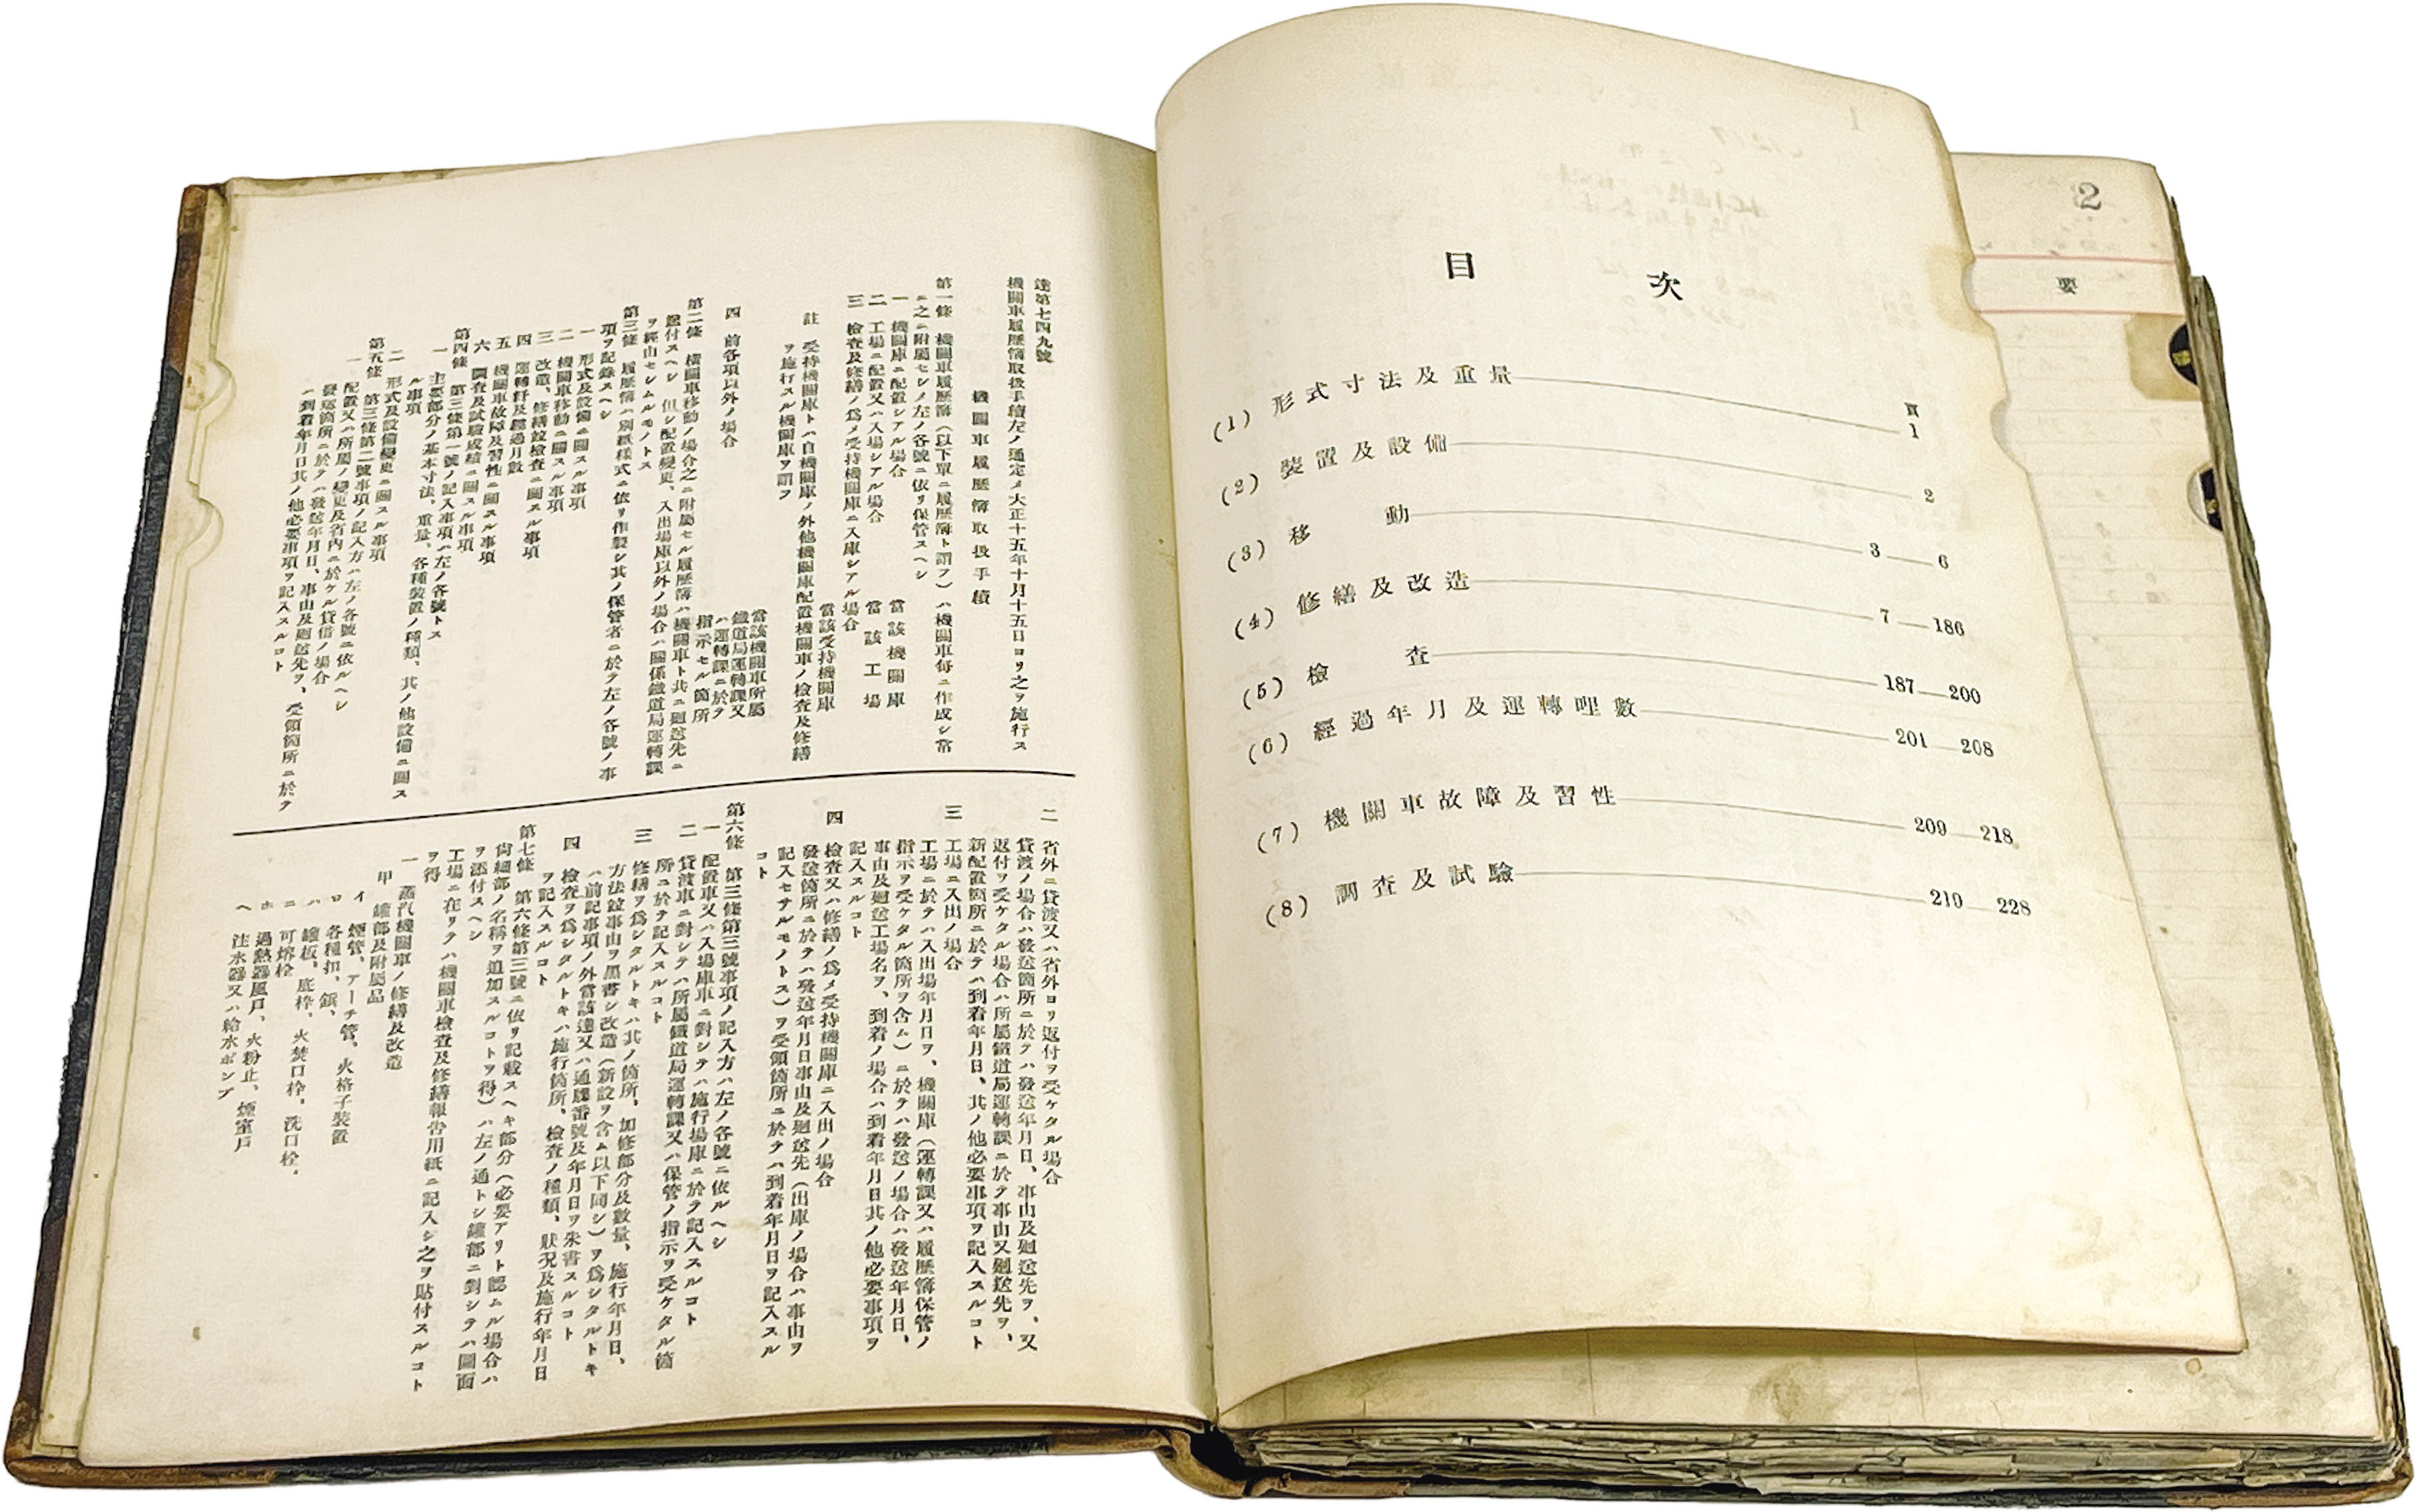 達第七四九號
機關車履歷簿取扱手續左ノ通定メ大正十五年十月十五日ヨリ之ヲ施行ス
機關車履歷簿取扱手續
第一條 機關車履歷簿(以下單ニ履歷簿ト謂フ)ハ機關車每ニ作成シ常
ニ之ニ附屬セシメ左ノ各號ニ依リ保管スヘシ
一 機關庫ニ配置シアル場合 當該機關庫
二 工場ニ配置又ハ入場シアル場合 當該工場
三 檢查及修繕ノ爲メ受持機關庫ニ入庫シアル場合 當該受持機關庫
註 受持機關庫トハ自機關庫ノ外他機關庫配置機關車ノ檢查及修繕
ヲ施行スル機關庫ヲ謂フ
四 前各項以外ノ場合 當該機關車所屬
鐵道局運轉課又
ハ運轉課ニ於テ
指示セル箇所
第二條 機關車移動ノ場合之ニ附屬セル履歷簿ハ機關車ト共ニ廻送先ニ
送付スヘシ 但シ配置變更、入出場庫以外ノ場合ハ關係鐵道局運轉課
ヲ經由セシムルモノトス
第三條 履歷簿ハ別紙樣式ニ依リ作製シ其ノ保管者ニ於テ左ノ各號ノ事
項ヲ記錄スヘシ
一 形式及設備ニ關スル事項
二 機關車移動ニ關スル事項
三 改造、修繕竝檢查ニ關スル事項
四 運轉粁及經過月數
五 機關車故障及習性ニ關スル事項
六 調查及試驗成績ニ關スル事項
第四條 第三條第一號ノ記入事項ハ左ノ各號トス
一 主要部分ノ基本寸法、重量、各種裝置ノ種類、其ノ他設備ニ關ス
ル事項
二 形式及設備變更ニ關スル事項
第五條 第三條第二號事項ノ記入方ハ左ノ各號ニ依ルヘシ
一 配置又ハ所屬ノ變更及省內ニ於ケル貸借ノ場合
發送箇所ニ於テハ發送年月日、事由及廻送先ヲ、受領箇所ニ於テ
ハ到着年月日其ノ他必要事項ヲ記入スルコト
二 省外ニ貸渡又ハ省外ヨリ返付ヲ受ケタル場合
貸渡ノ場合ハ發送箇所ニ於テハ發送年月日、事由及廻送先ヲ、又
返付ヲ受ケタル場合ハ所屬鐵道局運轉課ニ於テ事由又廻送先ヲ、
新配置箇所ニ於テハ到着年月日、其ノ他必要事項ヲ記入スルコト
三 工場ニ入出ノ場合
工場ニ於テハ入出場年月日ヲ、機關庫(運轉課又ハ履歷簿保管ノ
指示ヲ受ケタル箇所ヲ含ム)ニ於テハ發送ノ場合ハ發送年月日、
事由及廻送工場名ヲ、到着ノ場合ハ到着年月日其ノ他必要事項ヲ
記入スルコト
四 檢查又ハ修繕ノ爲メ受持機關庫ニ入出ノ場合
發送箇所ニ於テハ發送年月日事由及廻送先(出庫ノ場合ハ事由ヲ
記入セサルモノトス)ヲ受領箇所ニ於テハ到着年月日ヲ記入スル
コト
第六條 第三條第三號事項ノ記入方ハ左ノ各號ニ依ルヘシ
一 配置車又ハ入場庫車ニ對シテハ施行場庫ニ於テ記入スルコト
二 貸渡車ニ對シテハ所屬鐵道局運轉課又ハ保管ノ指示ヲ受ケタル箇
所ニ於テ記入スルコト
三 修繕ヲ爲シタルトキハ其ノ箇所、加修部分及數量、施行年月日、
方法竝事由ヲ黑書シ改造(新設ヲ含ム以下同シ)ヲ爲シタルトキ
ハ前記事項ノ外當該達又ハ通牒番號及年月日ヲ朱書スルコト
四 檢查ヲ爲シタルトキハ施行箇所、檢查ノ種類、狀況及施行年月日
ヲ記入スルコト
第七條 第六條第三號ニ依リ記載スヘキ部分(必要アリト認ムル場合ハ
尙細部ノ名稱ヲ追加スルコトヲ得)ハ左ノ通トシ罐部ニ對シテハ圖面
ヲ添付スヘシ
工場ニ在リテハ機關車檢查及修繕報告用紙ニ記入シ之ヲ貼付スルコト
ヲ得
一 蒸汽機關車ノ修繕及改造
甲 罐部及附屬品
イ 煙管、アーチ管、火格子裝置
ロ 各種扣、鋲、
ハ 罐板、底枠、火焚口枠、洗口栓、
ニ 可熔栓
ホ 過熱器風戶、火粉止、煙室戶
ヘ 注水器又ハ給水ポンプ
目次
頁
(1) 形式寸法及重量 1
(2) 裝置及設備 2
(3) 移動 3—6
(4) 修繕及改造 7—186
(5) 檢査 187—200
(6) 經過年月及運轉哩數 201—208
(7) 機關車故障及習性 209—218
(8) 調査及試驗 219—228
2
要